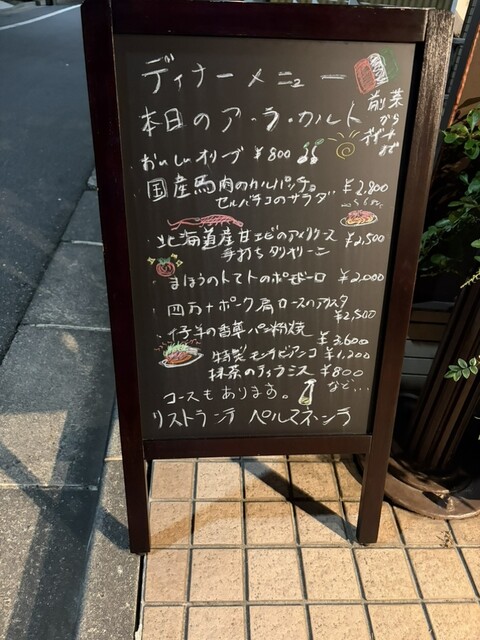 ディナーメニュー
前菜
から
デザート
まで
本日のア・ラ・カルト
おいしいオリーブ ¥800
国産馬肉のカルパッチョ
セルバチコのサラダ ¥2,800
北海道産甘エビのアメリケーヌ
手打ちタリオリーニ ¥2,500
まほうのトマトのポモドーロ ¥2,000
四万十ポーク肩ロースの
¥2,500
仔羊の香草パン粉焼 ¥3,600
特製モンテビアンコ ¥1,200
抹茶のティラミス ¥800
など...
コースもあります。
リストランテ ペルマネンテ